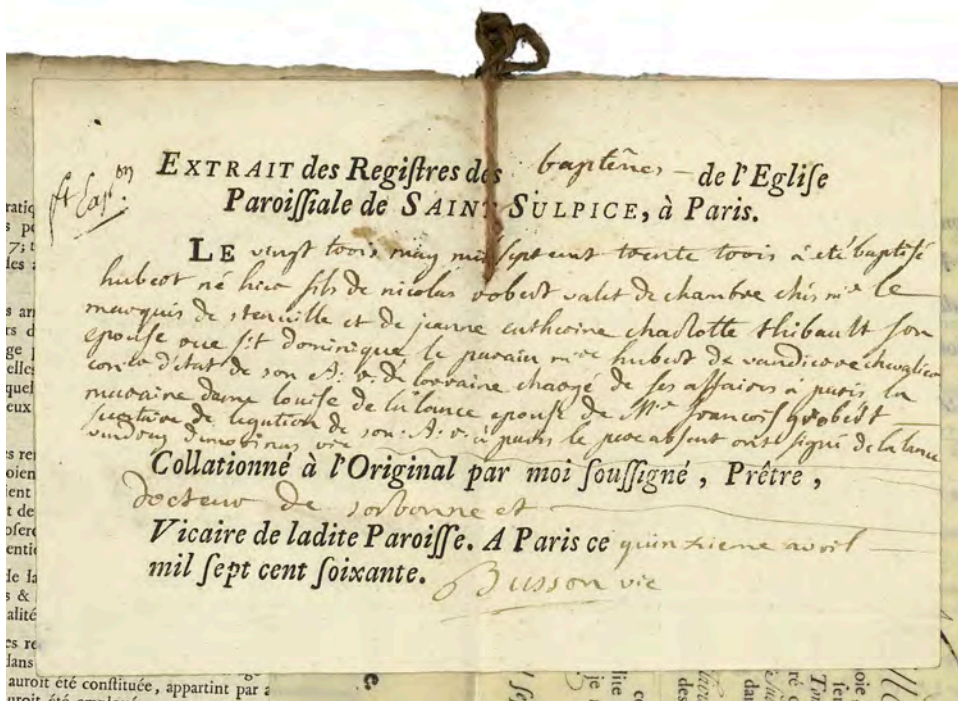 EXTRAIT des Regiſtres des baptêmes de l'Egliſe
Paroiſſiale de SAINT SULPICE, à Paris.
LE vingt trois may mil sept cent trente trois à eté baptisé
hubert né hier fils de nicolas robert valet de chambre chés mr le
marquis de stenville et de jeanne catherine charlotte thibault son
epouse rue st dominique le parain mre hubert de chevalier
d'état de son A: r: de lorraine chargé de ses affaires à paris la
maraine dame louise de la lance epouse de Mre francois robert
de legation de son A: r: à paris le pere absent ont signé de la lance
vic
Collationné à l'Original par moi ſouſſigné, Prêtre,
docteur de sorbonne et
Vicaire de ladite Paroiſſe. A Paris ce quinzieme avril
mil ſept cent ſoixante. Busson vic
auroit été conſtituée, appartint par